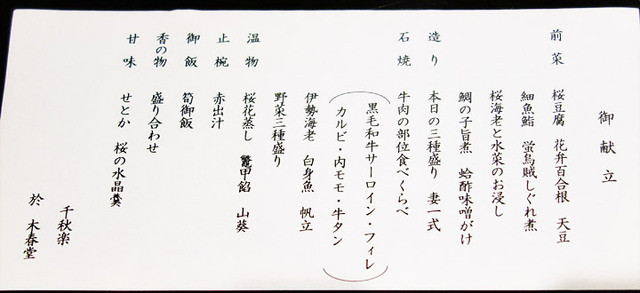 御献立
前菜 桜豆腐 花弁百合根 天豆
細魚鮨 蛍烏賊しぐれ煮
桜海老と水菜のお浸し
鯛の子旨煮 蛤酢味噌がけ
造り 本日の三種盛り 妻一式
石焼 牛肉の部位食べくらべ
(黒毛和牛サーロイン・フィレ
カルビ・内モモ・牛タン)
伊勢海老 白身魚 帆立
野菜三種盛り
温物 桜花蒸し 鼈甲餡 山葵
止椀 赤出汁
御飯 筍御飯
香の物 盛り合わせ
甘味 せとか 桜の水晶羹
千秋楽
於 木春堂